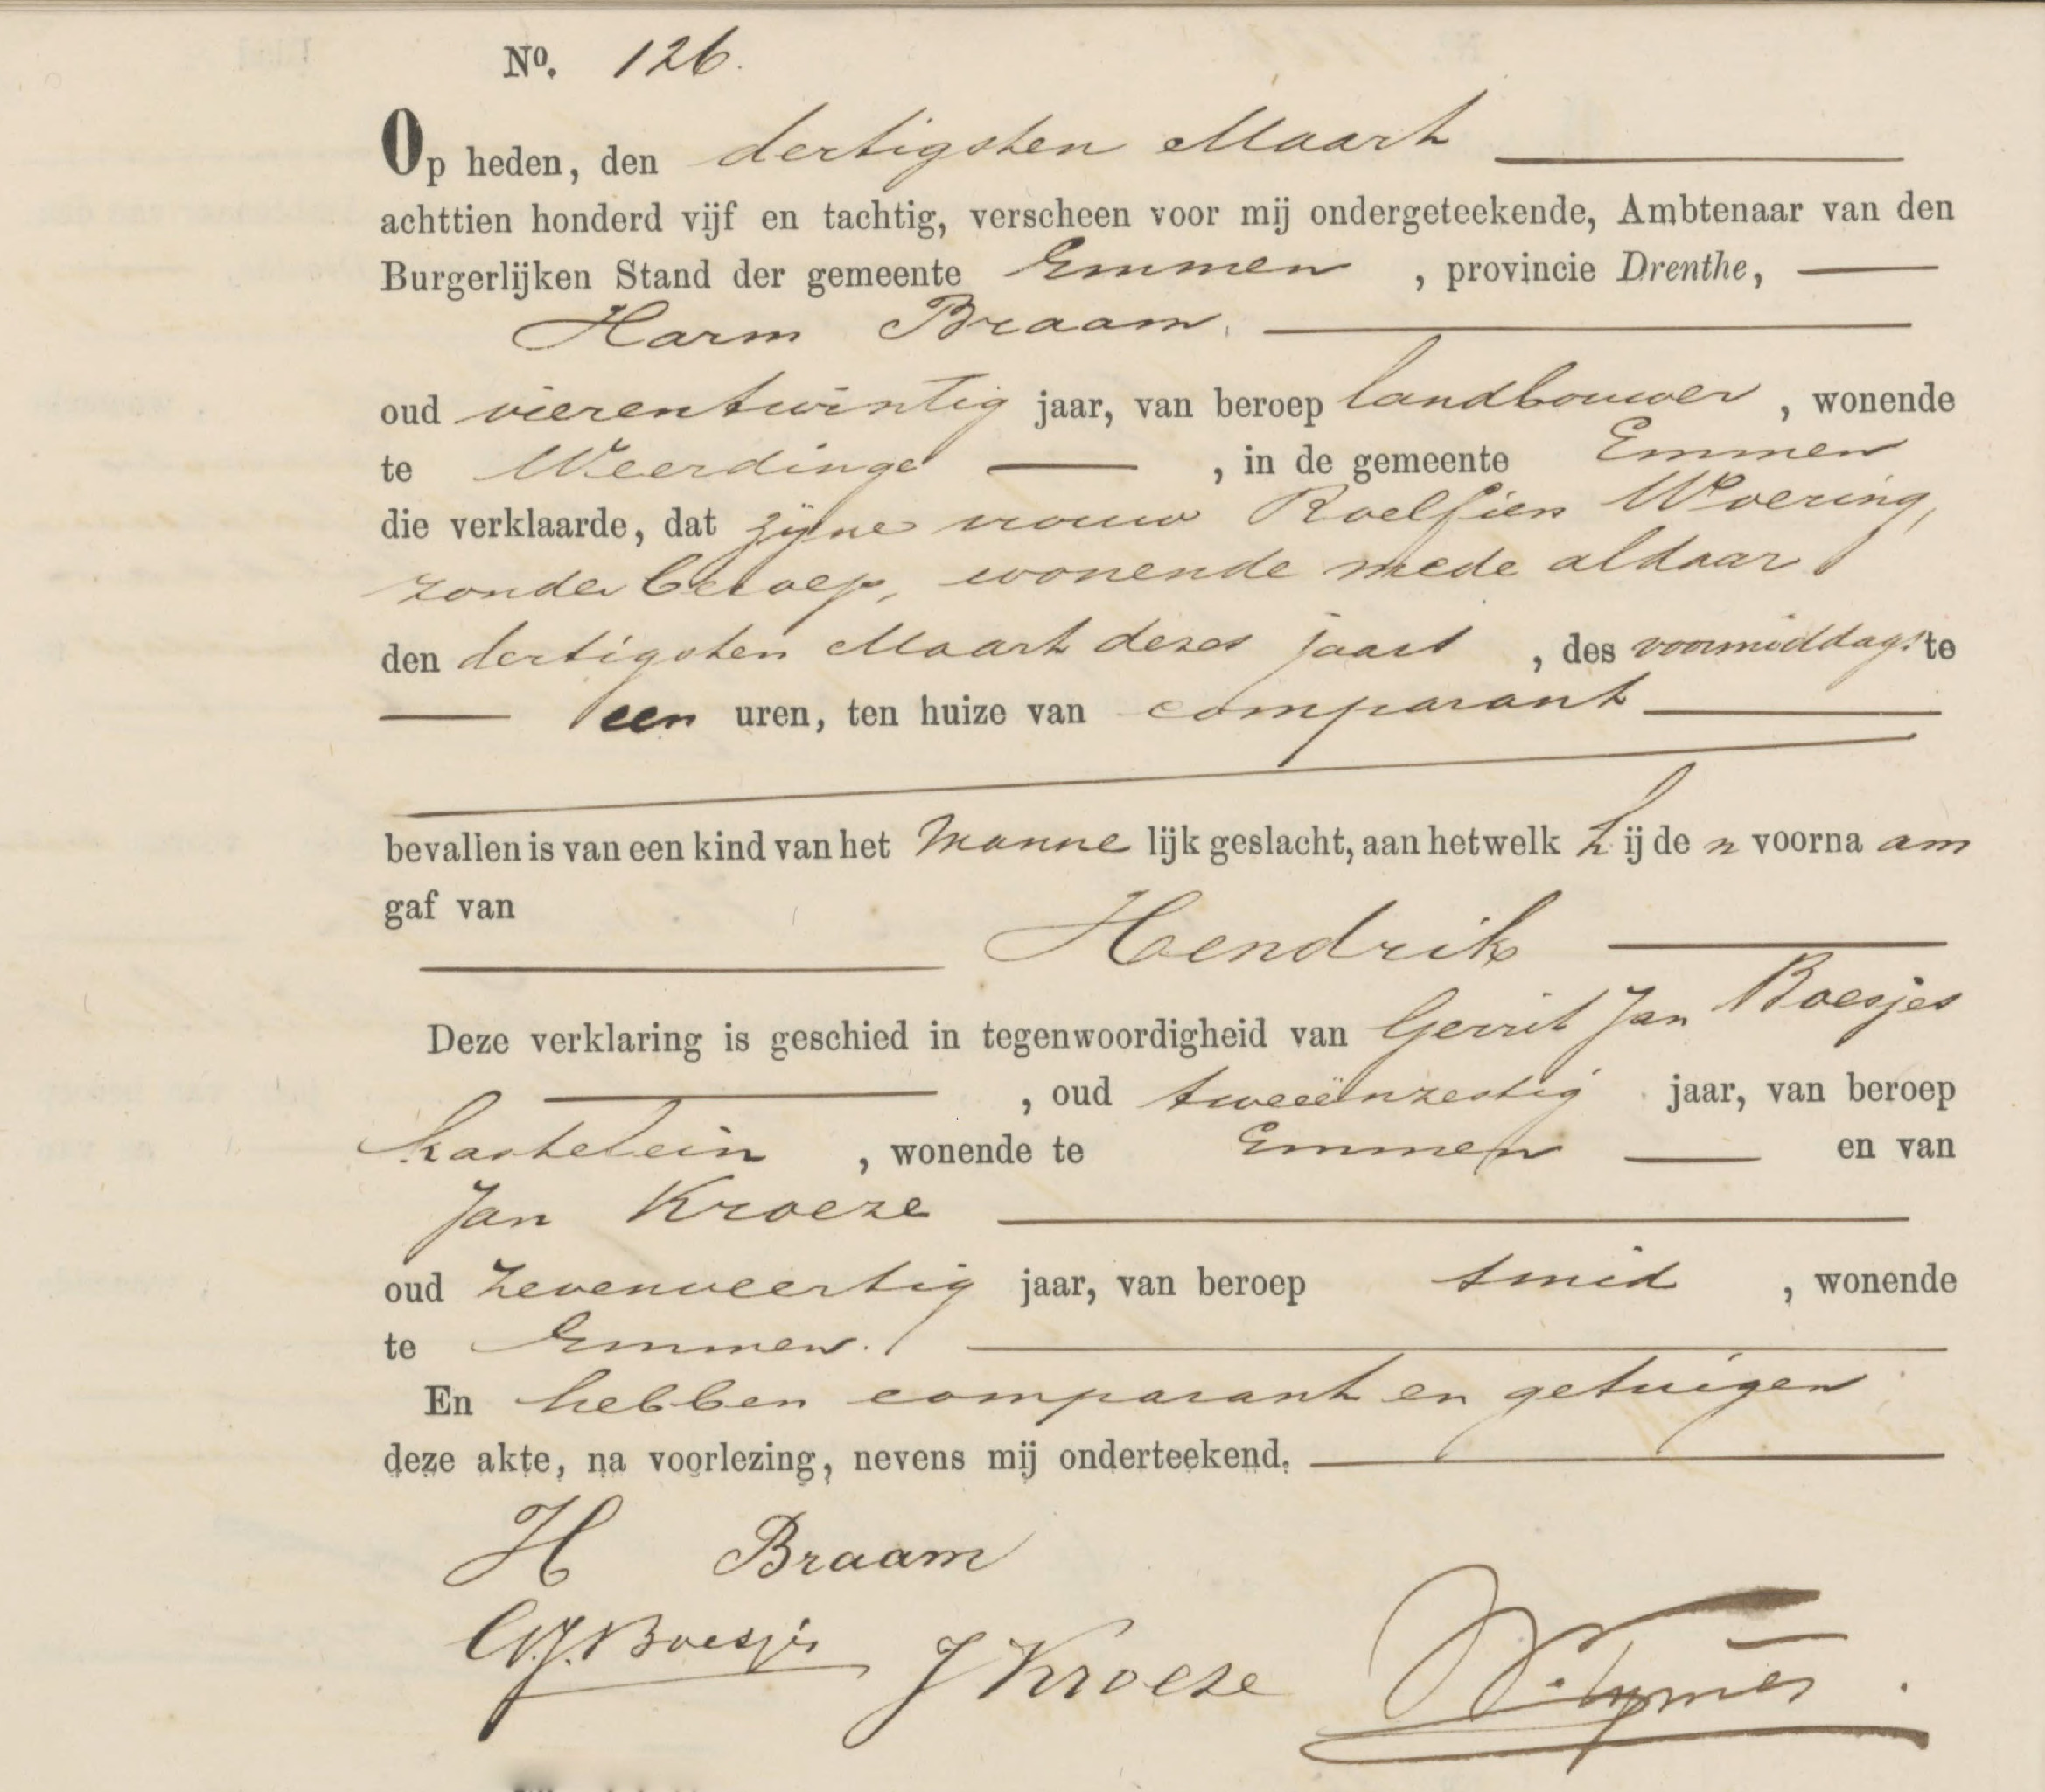 No. 126.
Op heden, den dertigsten Maart
achttien honderd vijf en tachtig, verscheen voor mij ondergeteekende, Ambtenaar van den
Burgerlijken Stand der gemeente Emmen , provincie Drenthe,
Harm Braam.
oud vierentwintig jaar, van beroep landbouwer , wonende
te Weerdinge , in de gemeente Emmen
die verklaarde, dat zijne vrouw Roelfien Woering,
zonder beroep, wonende mede aldaar
den dertigsten Maart dezes jaars , des voormiddags te
een uren, ten huize van comparant
bevallen is van een kind van het manne lijk geslacht, aan hetwelk h ij de n voorna am
gaf van
Hendrik
Deze verklaring is geschied in tegenwoordigheid van Gerrit Jan Boesjes
, oud tweeënzestig jaar, van beroep
kastelein , wonende te Emmen en van
Jan Kroeze
oud zevenveertig jaar, van beroep smid , wonende
te Emmen.
En hebben comparant en getuigen
deze akte, na voorlezing, nevens mij onderteekend.
H Braam
G.J. Boesjes J Kroeze